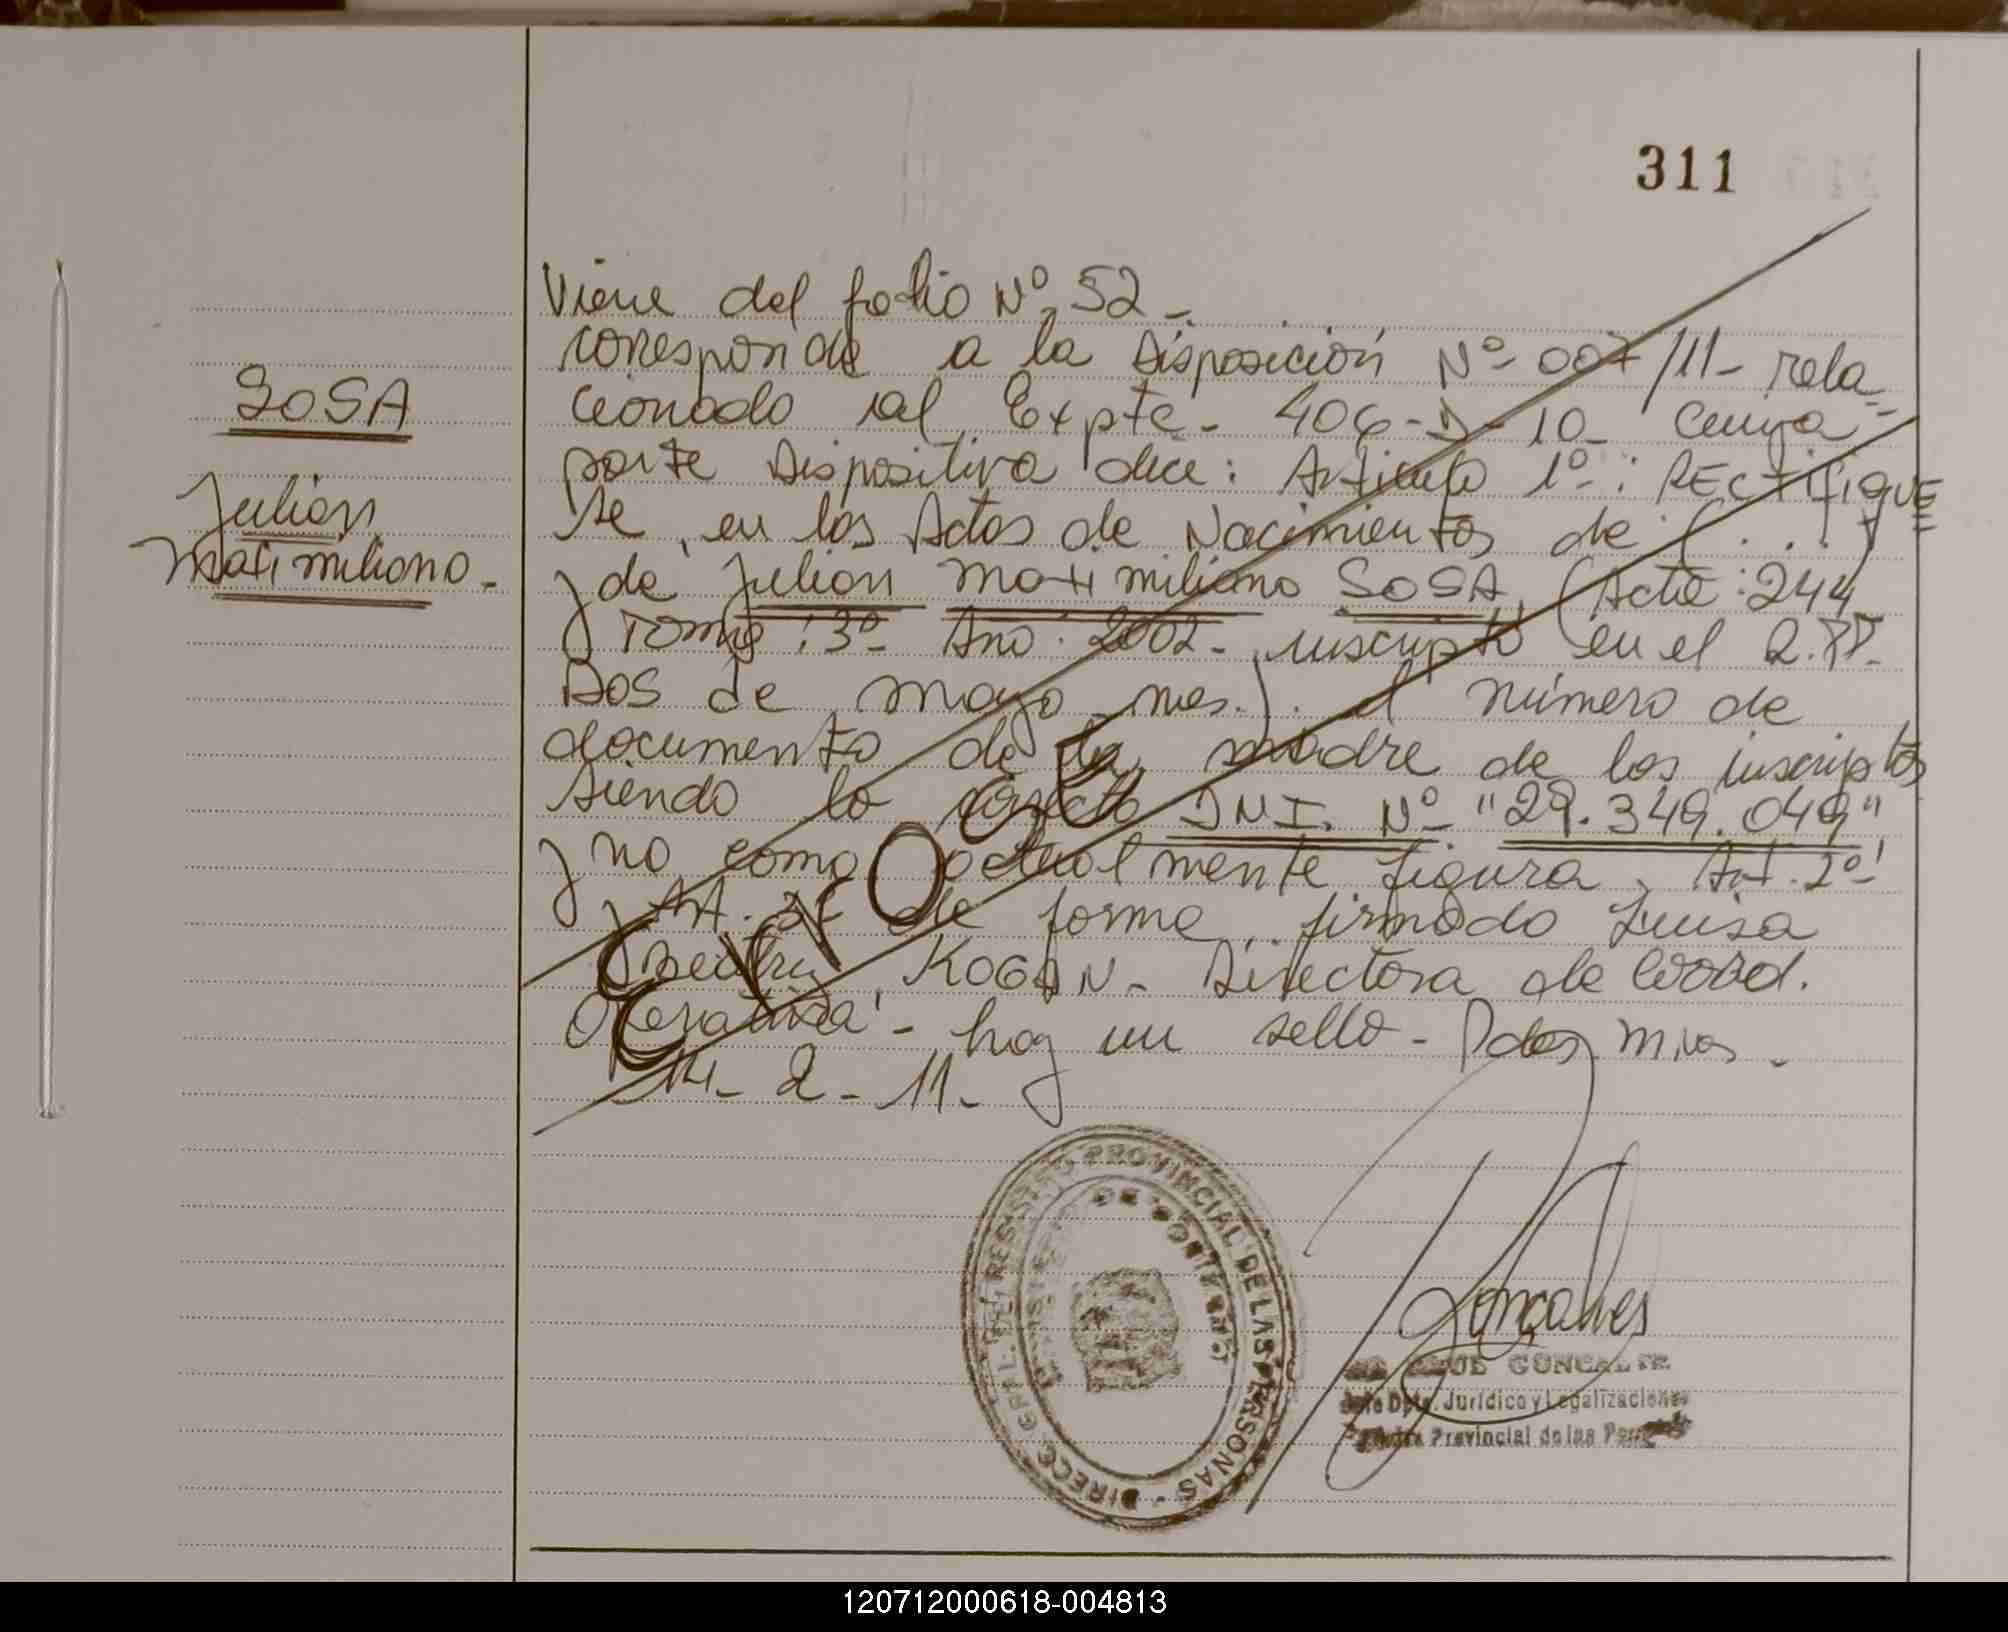 311
SOSA
Julian
Maximiliano -
Viene del folio Nº 52 -
corresponde a la Disposición Nº 007/11 - rela
cionado al Expte - 406 - D - 10 - cuya
parte Dispositiva dice: Articulo 1º: RECtifiquE
se, en las Actas de Nacimientos de (. . . )
y de Julian Maximiliano SOSA, (Acta: 244
y Tomo: 3º - Año: 2002 - inscripto en el
Dos de mayo, mes.). el número de
documento de la madre de los inscriptos
siendo lo correcto DNI. Nº "29.349.049"
y no como actualmente figura, Art. 2º
y Art. 3º de forma, firmado Luisa
Beatriz KOGAN - Directora de Coord.
Operativa - hay un sello - Pdas. Mnes -
14 - 2 - 11 -
ERROSE
DIRECC. GRAL. DEL REGISTRO PROVINCIAL DE LAS PERSONAS
Goncalves
GONCALVES
Jefe Dpto. Jurídico y Legalizaciones
Provincial de las Personas
120712000618-004813